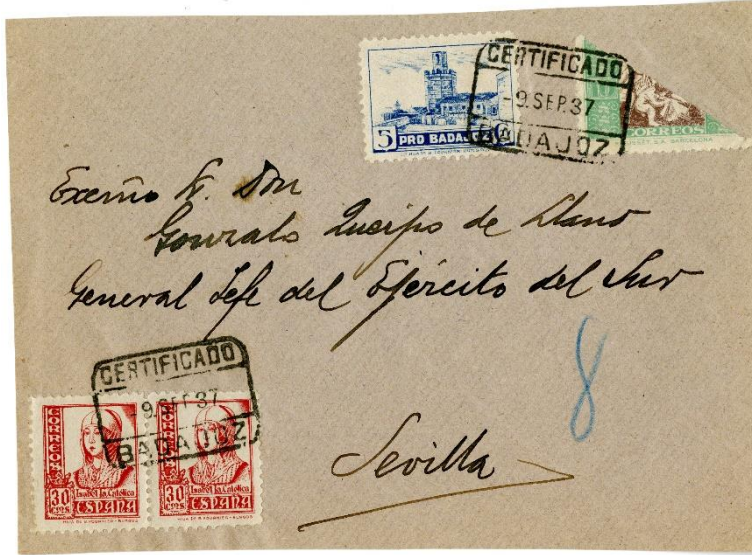 CERTIFICADO
-9.SEP.37
BADAJOZ
5 PRO BADAJOZ
CORREOS
Excmo S. Don
Gonzalo Queipo de Llano
General Jefe del Ejército del Sur
8
Sevilla
CERTIFICADO
-9.SEP.37
BADAJOZ
CORREOS
30 CTS.
Isabel la Católica
ESPAÑA
CORREOS
30 CTS.
Isabel la Católica
ESPAÑA